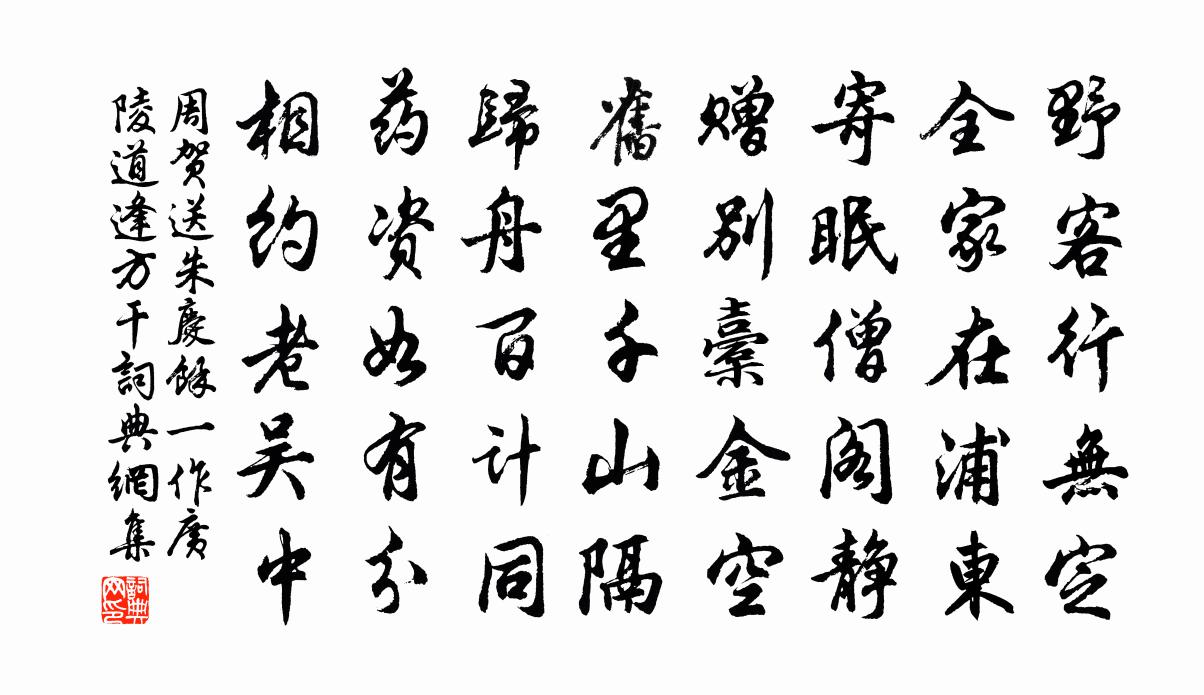 野客行無定
全家在浦東
寄眠僧阁静
赠别橐金空
舊里千山隔
歸舟百计同
药资如有分
相约老吴中
周贺送朱慶餘一作廣
陵道逢方干詞典網集
詞典
网印